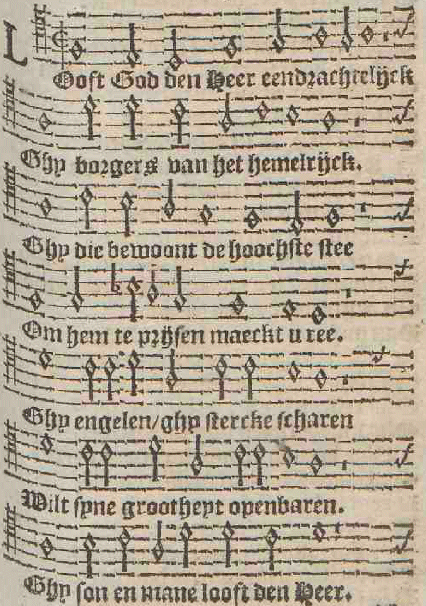 Looft God den Heer eendrachtelijck
Ghy borgers van het hemelrijck.
Ghy die bewoont de hoochste stee
Om hem te prijsen maeckt u ree.
Ghy engelen/ghy stercke scharen
Wilt syne grootheyt openbaren.
Ghy son en mane looft den Heer.